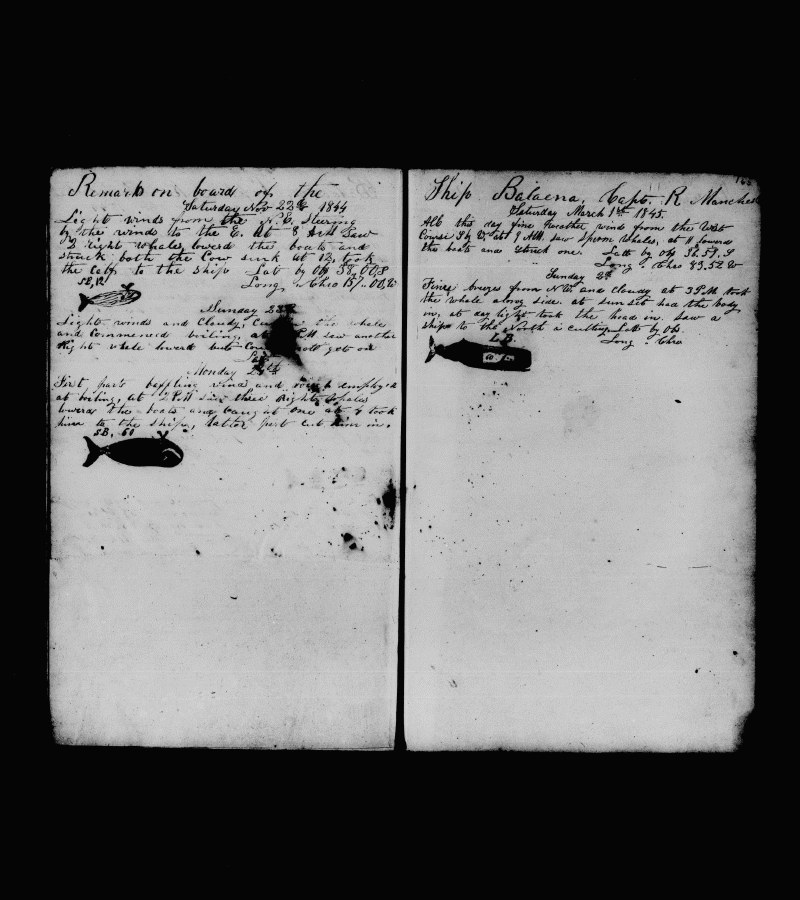 Remarks on board of the
Saturday Nov 22nd 1844
Light winds from the N.E. Steering
by the wind to the E. At 8 AM Saw
2 right whales lowerd the boats and
struck both the Cow sunk at 12, took
the Calf to the ship Lat by Ob 38,00,S
Long Chro 157.00,W
SB,12
Sunday 23
Light winds and Cloudy, the whale
and commenced boiling, at PM saw another
Right whale lowerd but not get on
Monday 24th
First part baffling wind and employed
at boiling, at 2 PM saw three Right whales
lowered the boats and caught one at 6 took
him to the ship, latter part cut him in.
SB, 60
165
Ship Balaena, Capt. R Manchester
Saturday March 1st 1845.
All this day fine weather wind from the West
Course at 9 AM. saw Sperm Whales, at 11 lowerd
the boats and struck one. Latt by Ob 36.59,S
Long . Chro 43,52 W
Sunday 2d
Fine breezes from NW and cloudy at 3 PM took
the whale along side at sunset had the body
in, at day light took the head in. saw a
ship to the North a cutting Latt by Ob.
Long . Chro
L.B.
60